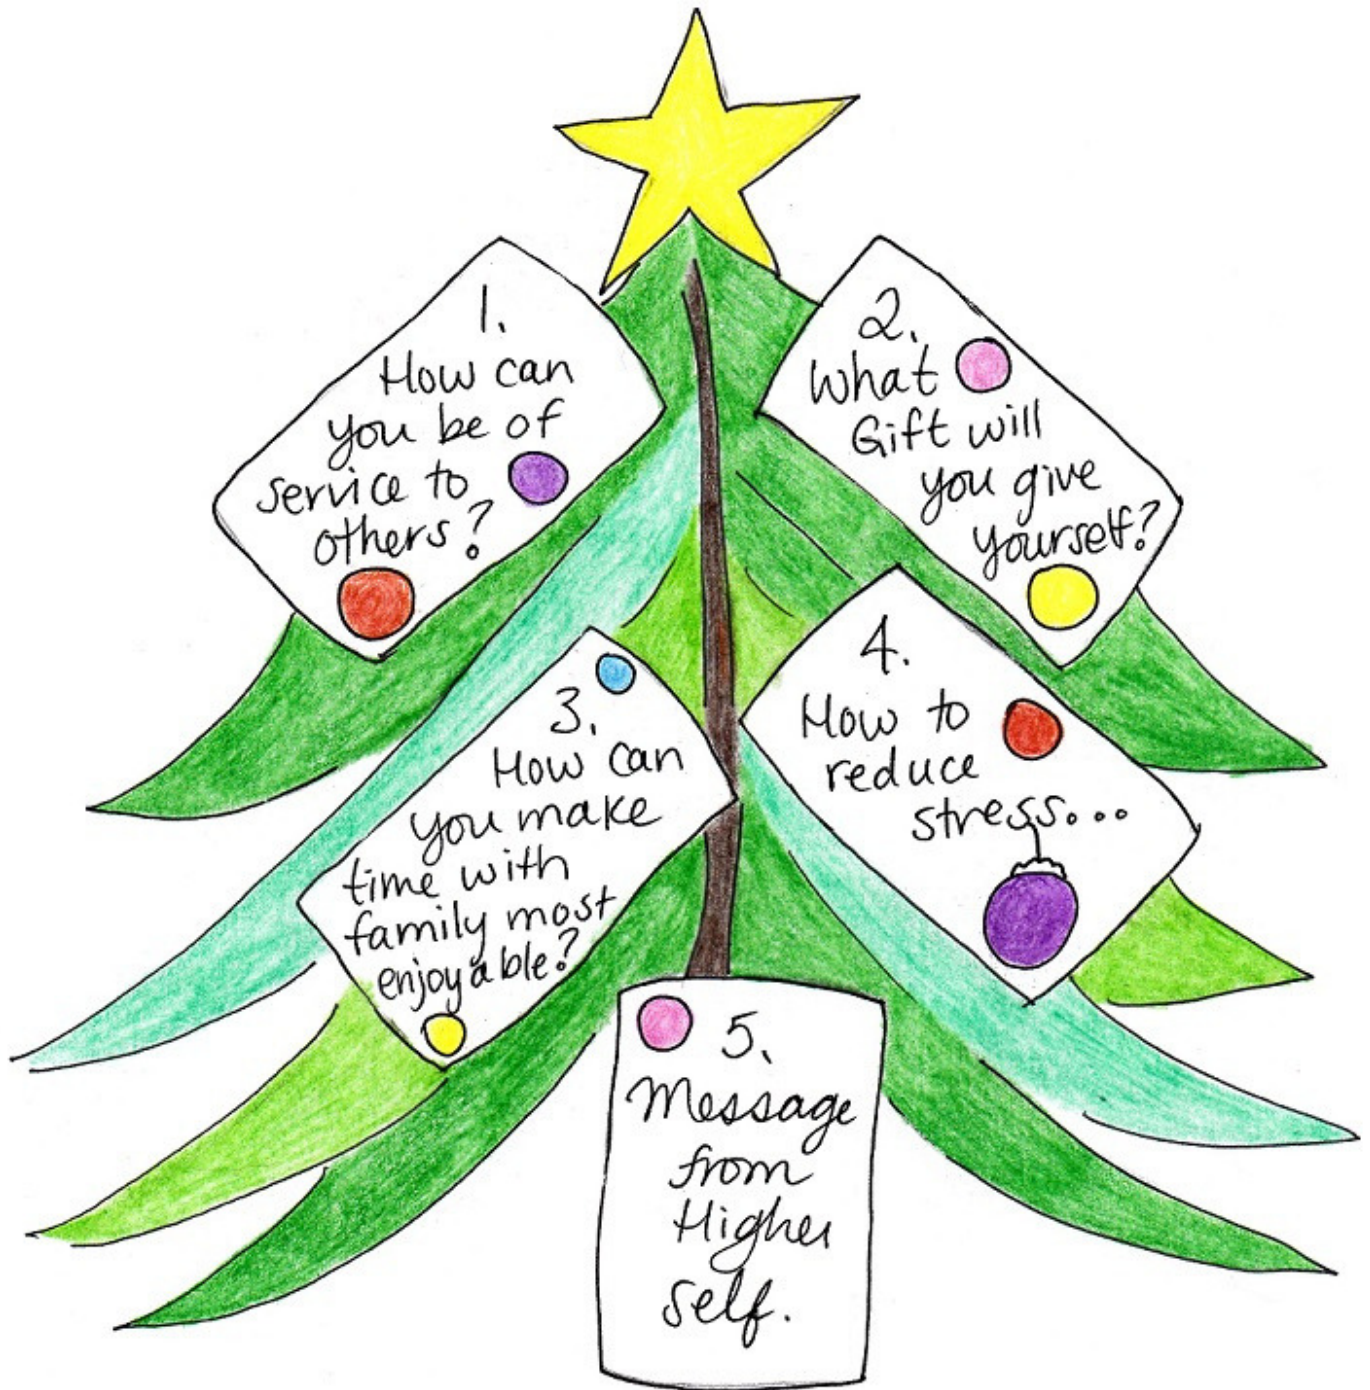 1.
How can
you be of
service to
others?
2.
What
Gift will
you give
yourself?
3.
How can
you make
time with
family most
enjoyable?
4.
How to
reduce
stress...
5.
Message
from
Higher
self.